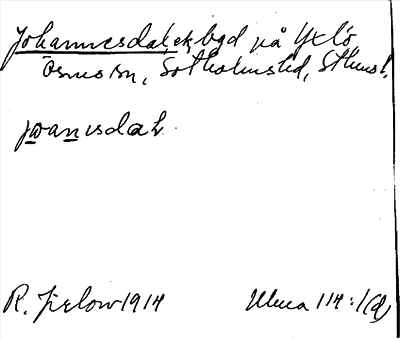 Johannesdal, ek, bgd på Yxlö
Ösmo sn, Sotholms hd, Sthms l.
jωanesdal.
R. Jirlow 1914
Ulma 114:1(d)